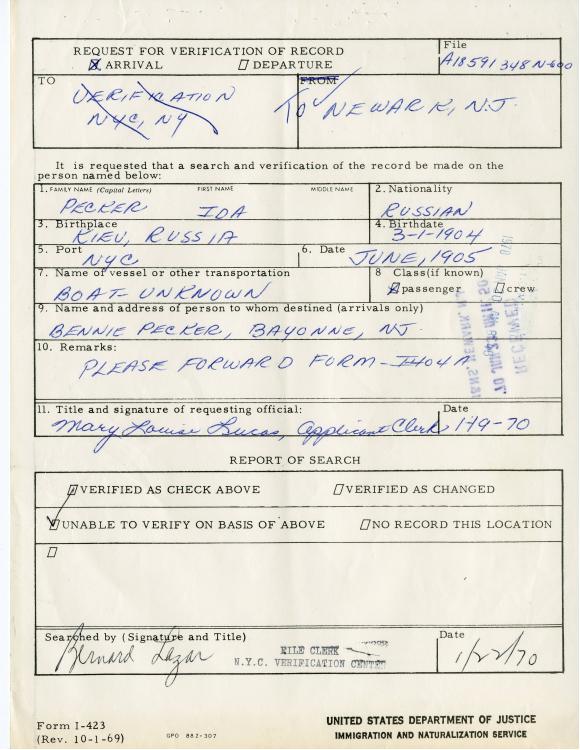 REQUEST FOR VERIFICATION OF RECORD
ARRIVAL DEPARTURE
File
A18591348 N-600
TO
VERIFICATION
NYC, NY
FROM
TO NEWARK, N.J.
It is requested that a search and verification of the record be made on the
person named below:
1. FAMILY NAME (Capital Letters) FIRST NAME MIDDLE NAME
PECKER IDA
2. Nationality
RUSSIAN
3. Birthplace
KIEV, RUSSIA
4. Birthdate
3-1-1904
5. Port
NYC
6. Date
JUNE, 1905
7. Name of vessel or other transportation
BOAT-UNKNOWN
8 Class(if known)
passenger crew
9. Name and address of person to whom destined (arrivals only)
BENNIE PECKER, BAYONNE, NJ.
10. Remarks:
PLEASE FORWARD FORM-I404A
RECEIVED
11. Title and signature of requesting official:
Mary Louise Lucas, Applicant Clerk
Date
1-19-70
REPORT OF SEARCH
VERIFIED AS CHECK ABOVE VERIFIED AS CHANGED
UNABLE TO VERIFY ON BASIS OF ABOVE NO RECORD THIS LOCATION
Searched by (Signature and Title)
Bernard Lazar
FILE CLERK
N.Y.C. VERIFICATION CENTER
Date
1/22/70
Form I-423
(Rev. 10-1-69)
GPO 882-307
UNITED STATES DEPARTMENT OF JUSTICE
IMMIGRATION AND NATURALIZATION SERVICE